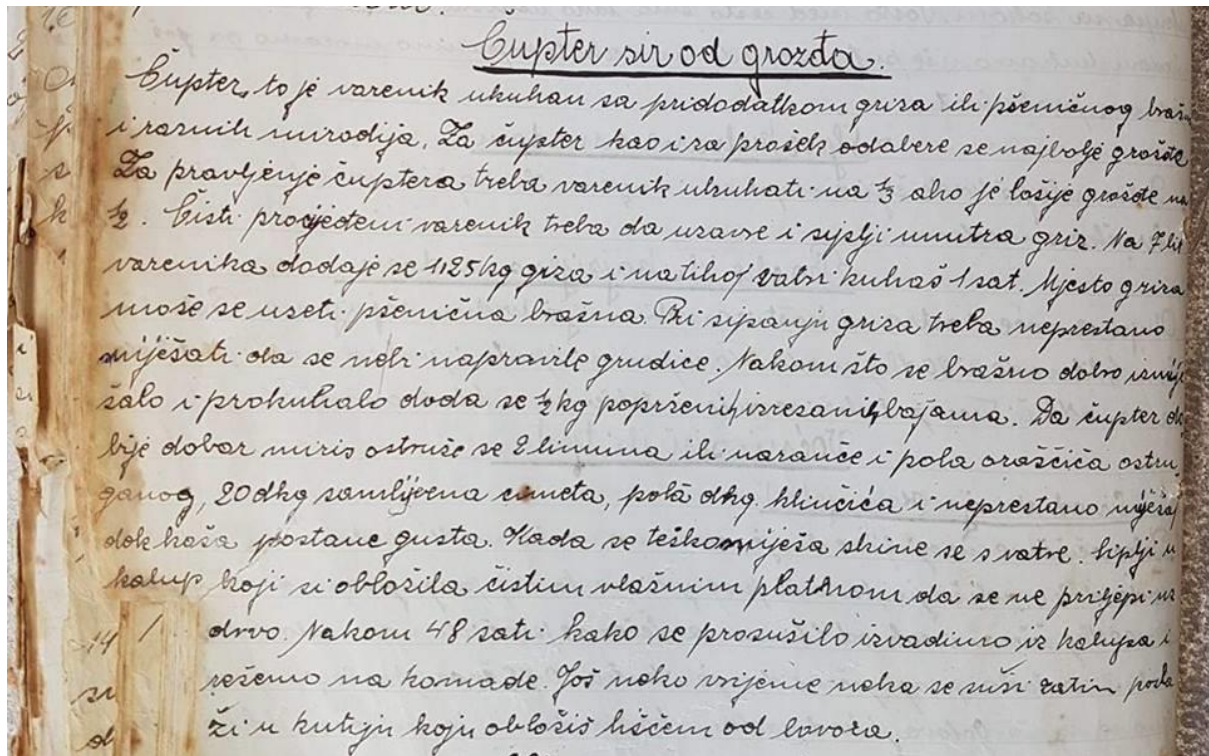 Čupter sir od grozđa.
Čupter, to je varenik ukuhan sa pridodatkom griza ili pšeničnog braš
i raznih mirodija. Za čupter kao i za prošek odabere se najbolje grožđe
Za pravljenje čuptera treba varenik ukuhati na ⅓ ako je lošije grožđe na
½. Čisti procijeđeni varenik treba da uzavre i siplji unutra griz. Na 7 lit
varenika dodaje se 1,25 kg griza i na tihoj vatri kuhaš 1 sat. Mjesto griza
može se uzeti pšenična brašna. Pri sipanju griza treba neprestano
miješati da se nebi napravile grudice. Nakom što se brašno dobro izmije
šalo i prokuhalo doda se ½ kg poprženih, izrezanih bajama. Da čupter do
bije dobar miris ostruže se 2 limuna ili naranče i pola oraščića ostru
ganog, 20 dkg samljvena cimeta, pola dkg. klinčića i neprestano miješaj
dok kaša postane gusta. Kada se teško miješa skine se s vatre. Siplji u
kalup koji si obložila čistim vlažnim platnom da se ne prilijepi uz
14 / drvo. Nakom 48 sati kako se prosušilo izvadimo iz kalupa i
režemo na komade. Još neko vrijeme neka se suši zatim posla
ži u kutiju koju obložiš lišćem od lovora.